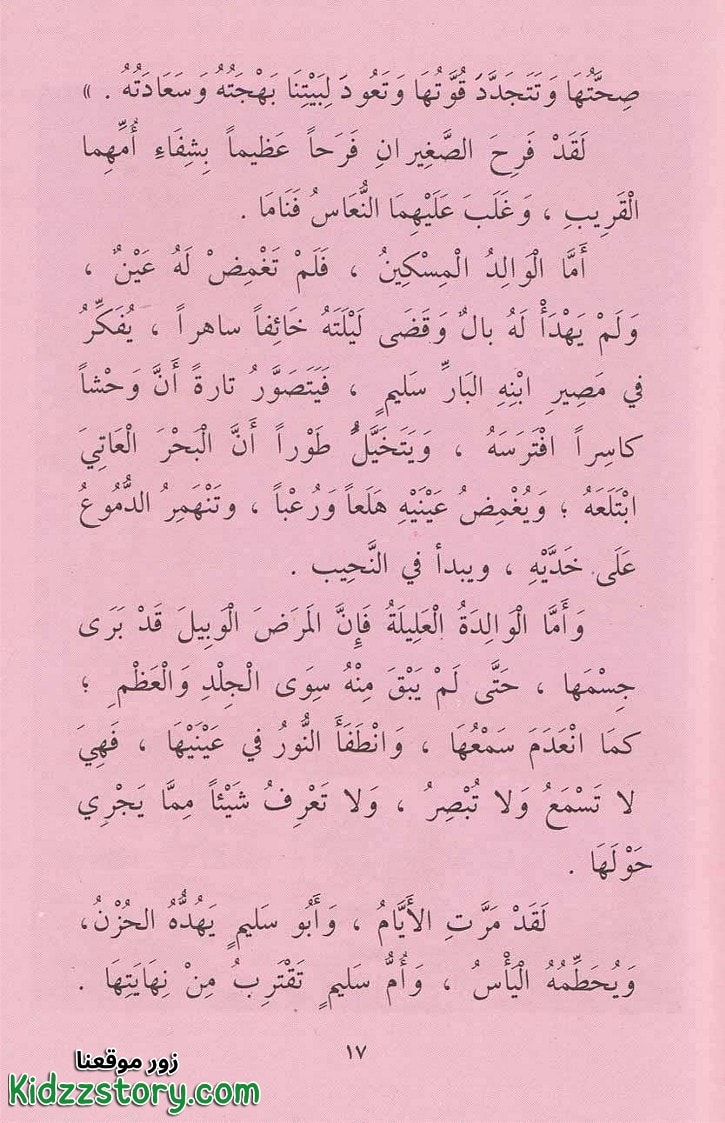 صِحَّتُهَا وَتَتَجَدَّدَ قُوَّتُهَا وَتَعُودَ لِبَيْتِنَا بَهْجَتُهُ وَسَعَادَتُهُ . »
لَقَدْ فَرِحَ الصَّغِيرانِ فَرَحاً عَظِيماً بِشِفَاءِ أُمِّهِما
الْقَرِيبِ ، وَغَلَبَ عَلَيْهِمَا النُّعَاسُ فَنَامَا .
أَمَّا الْوَالِدُ الْمِسْكِينُ ، فَلَمْ تَغْمِضْ لَهُ عَيْنٌ ،
وَلَمْ يَهْدَأْ لَهُ بالٌ وَقَضَى لَيْلَتَهُ خَائِفاً ساهراً ، يُفَكِّرُ
في مَصِيرِ ابْنِهِ البَارِّ سَليمٍ ، فَيَتَصَوَّرُ تارةً أَنَّ وَحْشاً
كاسِراً افْتَرَسَهُ ، وَيَتَخَيَّلُ طَوْراً أَنَّ الْبَحْرَ الْعَاتِيَ
ابْتَلَعَهُ ؛ وَيُغْمِضُ عَيْنَيْهِ هَلَعاً وَرُعْباً ، وتَنْهَمِرُ الدُّمُوعُ
عَلَى خَدَّيْهِ ، ويبدأ في النَّحِيب .
وَأَمَّا الْوَالِدَةُ الْعَلِيلَةُ فَإِنَّ المَرَضَ الْوَبِيلَ قَدْ بَرَى
جِسْمَها ، حَتَّى لَمْ يَبْقَ مِنْهُ سِوَى الْجِلْدِ وَالْعَظْمِ ؛
كمَا انْعَدَمَ سَمْعُهَا ، وَانْطَفَأَ النُّورُ في عَيْنَيْهَا ، فَهِيَ
لا تَسْمَعُ وَلا تُبْصِرُ ، وَلا تَعْرِفُ شَيْئاً مِمَّا يَجْرِي
حَوْلَهَا .
لَقَدْ مَرَّتِ الأَيَّامُ ، وَأَبُو سَليمٍ يَهُدُّهُ الحُزْنُ،
وَيُحَطِّمُهُ الْيَأْسُ ، وَأُمُّ سَليمٍ تَقْتَرِبُ مِنْ نِهَايَتِهَا .
١٧
زور موقعنا
Kidzzstory.com